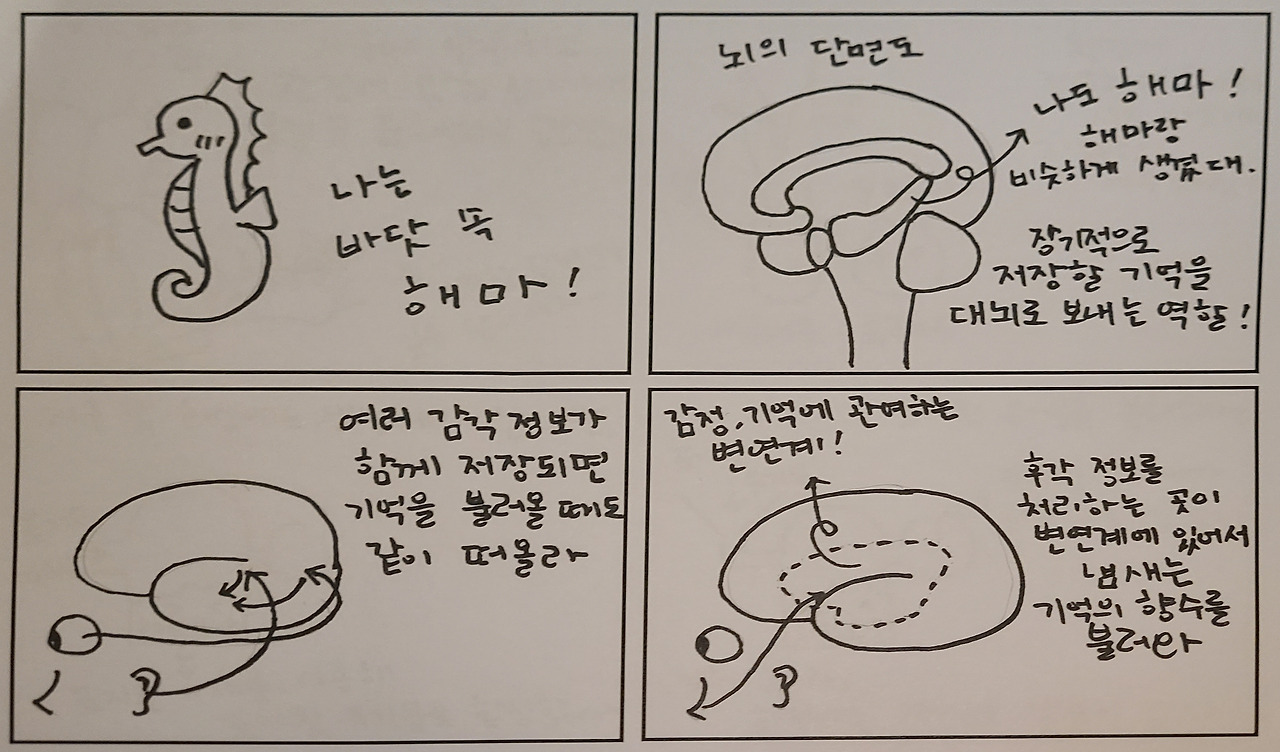 나는
바닷 속
해마!
뇌의 단면도
나도 해마!
해마랑
비슷하게 생겼대.
장기적으로
저장할 기억을
대뇌로 보내는 역할!
여러 감각 정보가
함께 저장되면
기억을 불러올 때도
같이 떠올라
감정, 기억에 관여하는
변연계!
후각 정보를
처리하는 곳이
변연계에 있어서
냄새는
기억의 향수를
불러와